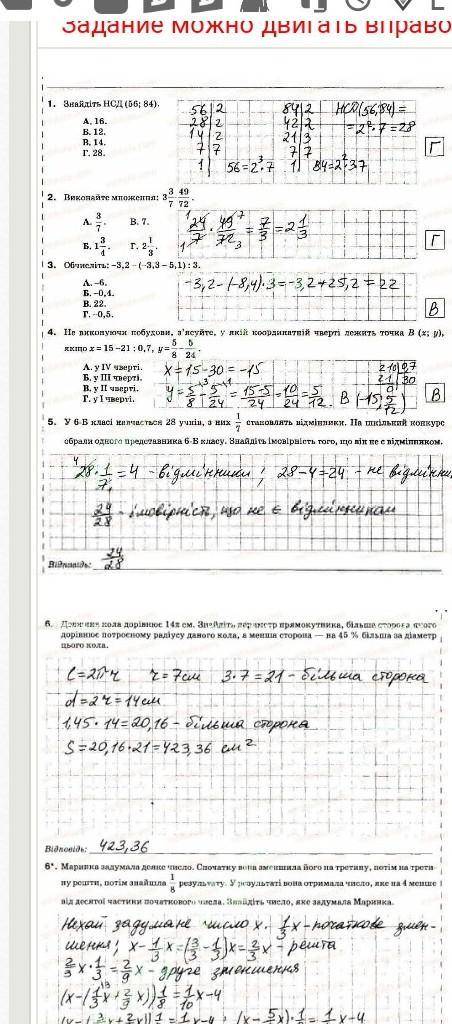 Задание можно двигать вправо
1. Знайдіть НСД (56; 84).
А. 16.
Б. 12.
В. 14.
Г. 28.
56 | 2
28 | 2
14 | 2
7 | 7
1
56=2³·7
84 | 2
42 | 2
21 | 3
7 | 7
1
84=2²·3·7
НСД(56,84)=
=2²·7=28
Г
2. Виконайте множення: 3 3/7 · 49/72.
А. 3/7. В. 7.
Б. 1 3/4. Г. 2 1/3.
24/7 · 49/72 = 7/3 = 2 1/3
Г
3. Обчисліть: –3,2 – (–3,3 – 5,1) : 3.
А. –6.
Б. –0,4.
В. 22.
Г. –0,5.
-3,2-(-8,4)·3=-3,2+25,2=22
В
4. Не виконуючи побудови, з'ясуйте, у якій координатній чверті лежить точка B (x; y),
якщо x = 15 – 21 : 0,7, y = 5/8 – 5/24.
А. у IV чверті.
Б. у III чверті.
В. у II чверті.
Г. у I чверті.
x=15-30=-15
y=5/8-5/24=15-5/24=10/24=5/12. B(-15, 5/12)
210 | 0,7
21 | 30
0
В
5. У 6-Б класі навчається 28 учнів, з них 1/7 становлять відмінники. На шкільний конкурс
обрали одного представника 6-Б класу. Знайдіть імовірність того, що він не є відмінником.
28·1/7=4 - відмінники; 28-4=24 - не відмінни
24/28 - імовірність, що не є відмінником
Відповідь: 24/28
6. Довжина кола дорівнює 14π см. Знайдіть периметр прямокутника, більша сторона якого
дорівнює потроєному радіусу даного кола, а менша сторона — на 45 % більша за діаметр
цього кола.
C=2πr r=7см 3·7=21 - більша сторона
d=2r=14см
1,45·14=20,16 - більша сторона
S=20,16·21=423,36 см²
Відповідь: 423,36
6*. Маринка задумала деяке число. Спочатку вона зменшила його на третину, потім на трети-
ну решти, потім знайшла 1/8 результату. У результаті вона отримала число, яке на 4 менше
від десятої частини початкового числа. Знайдіть число, яке задумала Маринка.
Нехай задумане число x. 1/3x - початкове змен-
шення; x-1/3x=(3/3-1/3)x=2/3x - решта
2/3x·1/3=2/9x - друге зменшення
(x-(1/3x+2/9x))1/8=1/10x-4